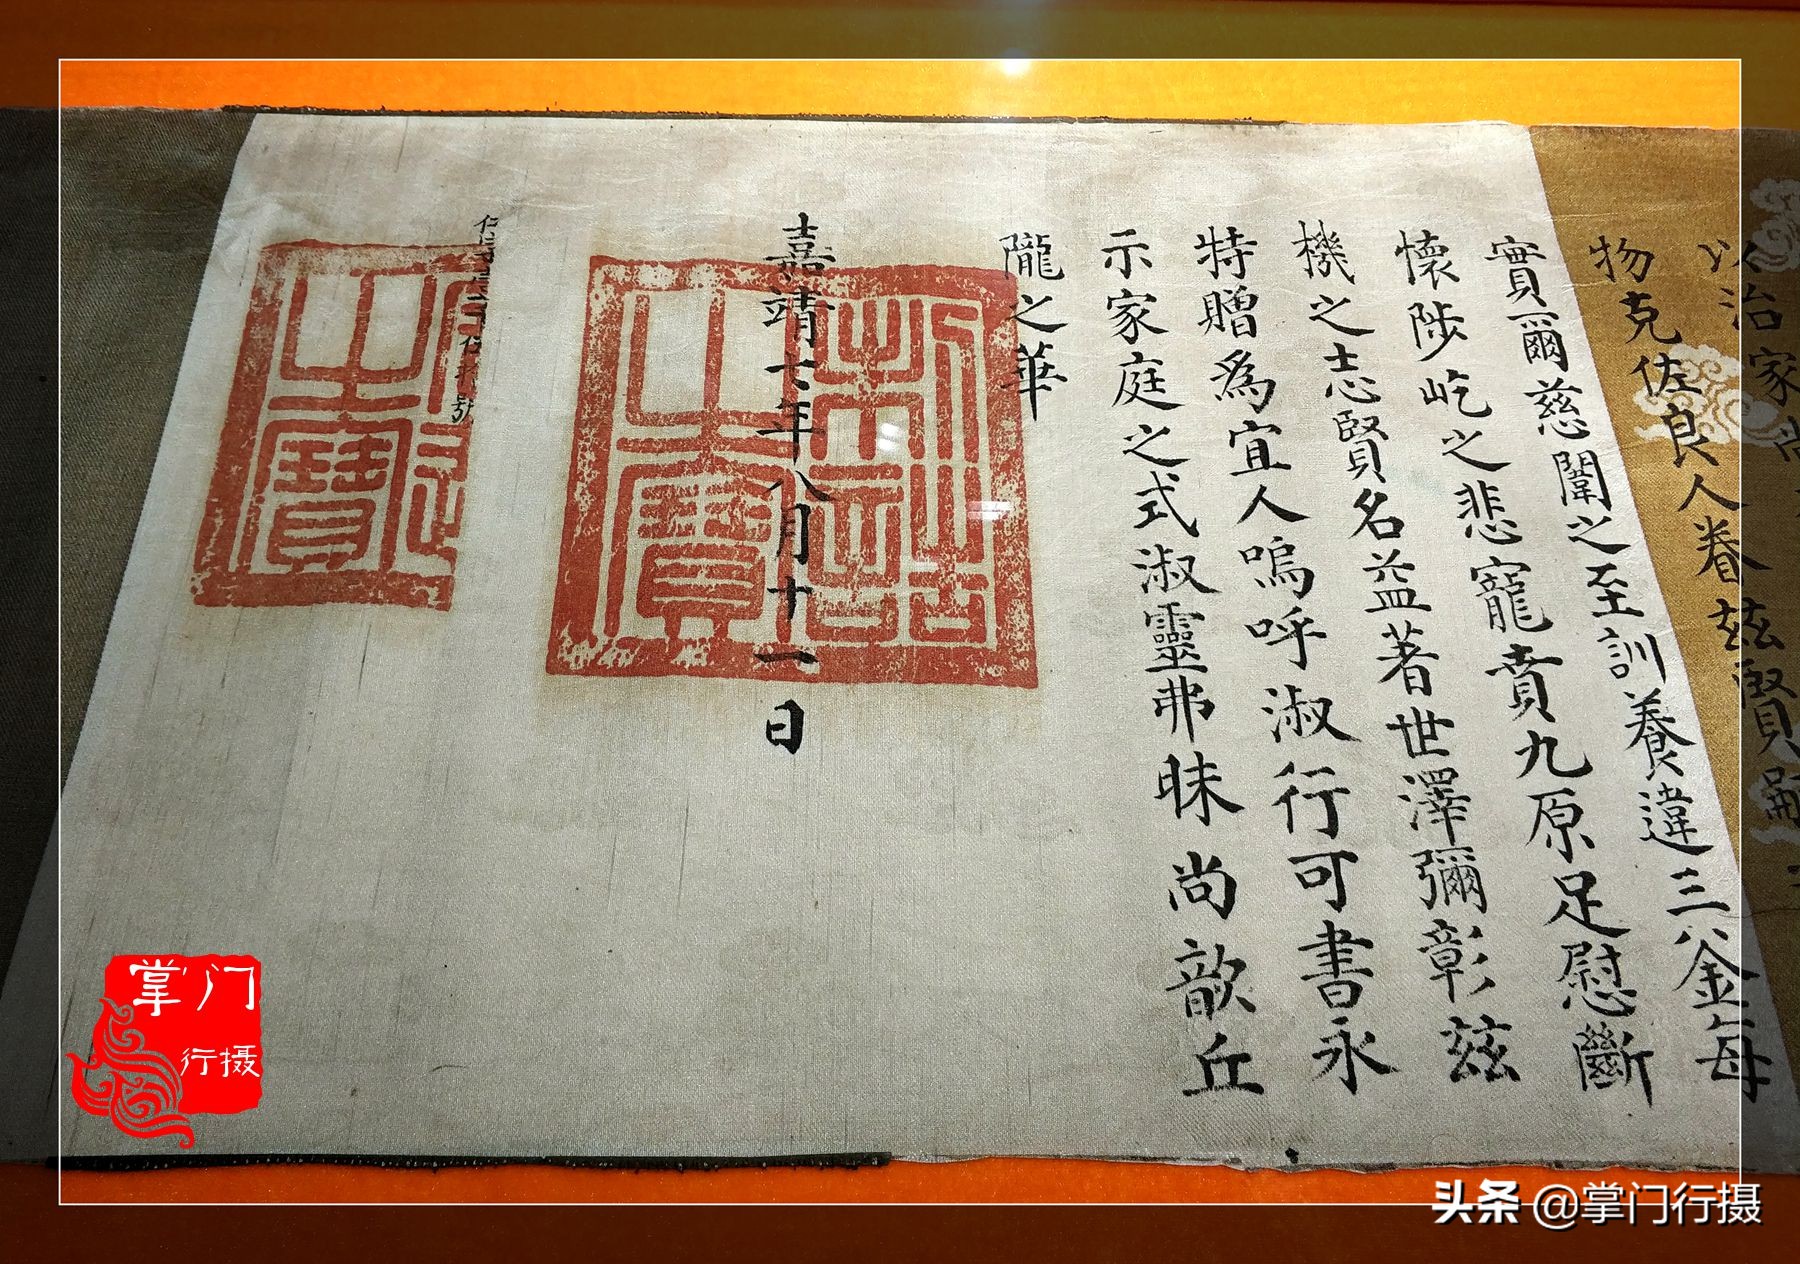 以治家
物克佐良人眷茲賢嗣
實爾慈闈之至訓養違三釜每
懷陟屺之悲寵賁九原足慰斷
機之志賢名益著世澤彌彰茲
特贈為宜人嗚呼淑行可書永
示家庭之式淑靈弗昧尚歆丘
隴之華
嘉靖七年八月十一日
制誥之寶
之寶
掌门
行摄
头条 @掌门行摄